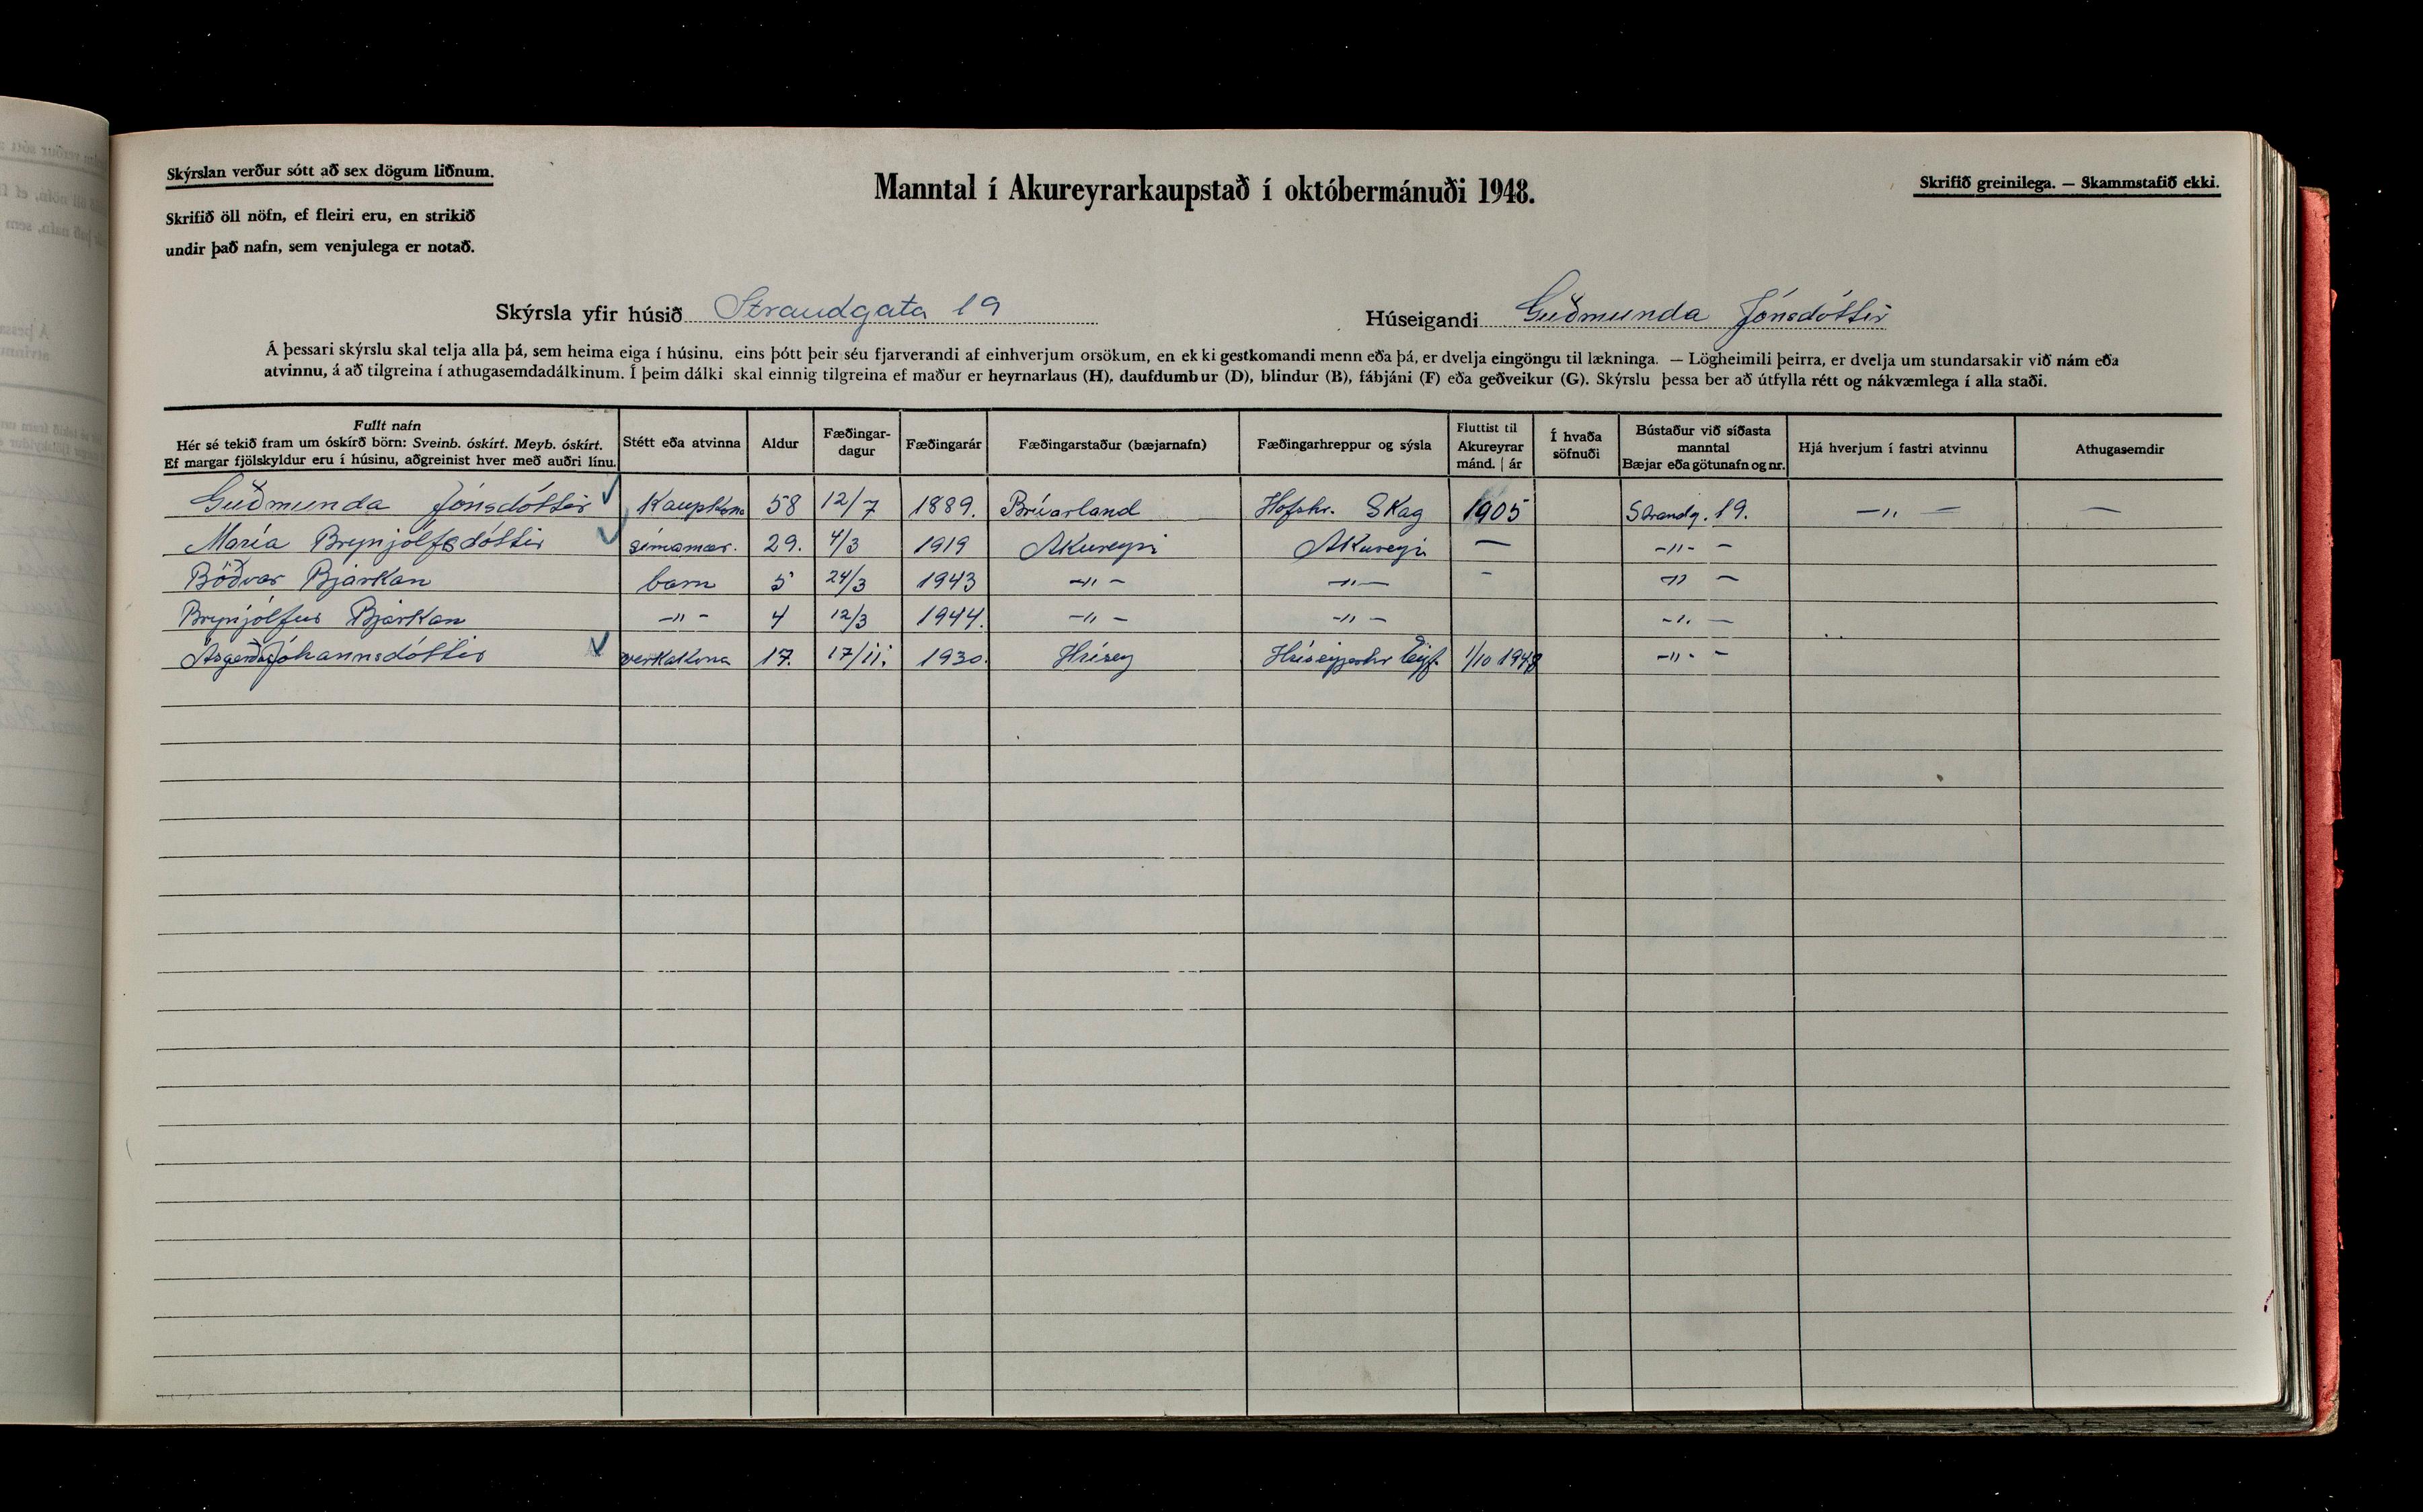 Skýrslan verður sótt að sex dögum liðnum.
Skrifið öll nöfn, ef fleiri eru, en strikið
undir það nafn, sem venjulega er notað.
Manntal í Akureyrarkaupstað í októbermánuði 1948.
Skrifið greinilega. — Skammstafið ekki.
Skýrsla yfir húsið Strandgata 19
Húseigandi Guðmunda Jónsdóttir
Á þessari skýrslu skal telja alla þá, sem heima eiga í húsinu, eins þótt þeir séu fjarverandi af einhverjum orsökum, en ekki gestkomandi menn eða þá, er dvelja eingöngu til lækninga. — Lögheimili þeirra, er dvelja um stundarsakir við nám eða
atvinnu, á að tilgreina í athugasemdadálkinum. Í þeim dálki skal einnig tilgreina ef maður er heyrnarlaus (H), daufdumbur (D), blindur (B), fábjáni (F) eða geðveikur (G). Skýrslu þessa ber að útfylla rétt og nákvæmlega í alla staði.
Fullt nafn
Hér sé tekið fram um óskírð börn: Sveinb. óskírt. Meyb. óskírt.
Ef margar fjölskyldur eru í húsinu, aðgreinist hver með auðri línu.
Stétt eða atvinna
Aldur
Fæðingar-
dagur
Fæðingarár
Fæðingarstaður (bæjarnafn)
Fæðingarhreppur og sýsla
Fluttist til
Akureyrar
mánd. | ár
Í hvaða
söfnuði
Bústaður við síðasta
manntal
Bæjar eða götunafn og nr.
Hjá hverjum í fastri atvinnu
Athugasemdir
Guðmunda Jónsdóttir ✓ Kaupkona 58 12/7 1889. Brúarland Hofshr. Skag 1905 Strandg. 19. —"— —
María Brynjólfsdóttir ✓ símamær. 29. 4/3 1919 Akureyri Akureyri — —"— —
Böðvar Bjarkan barn 5 24/3 1943 —"— —"— — —"— —
Brynjólfur Bjarkan —"— 4 12/3 1944. —"— —"— —"— —
Ásgerður Jóhannsdóttir ✓ verkakona 17. 17/11. 1930. Hrísey Hríseyjarhr Eyjf. 1/10 1948 —"— —